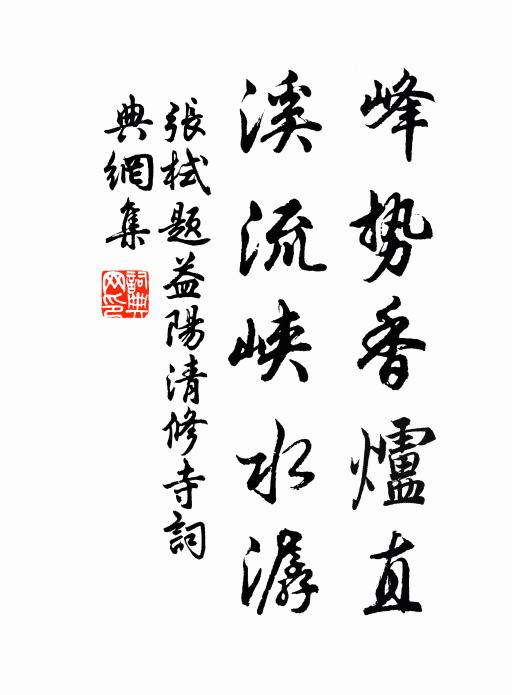 峰势香爐直
溪流峡水潺
張栻题益陽清修寺詞
典網集
詞典網印